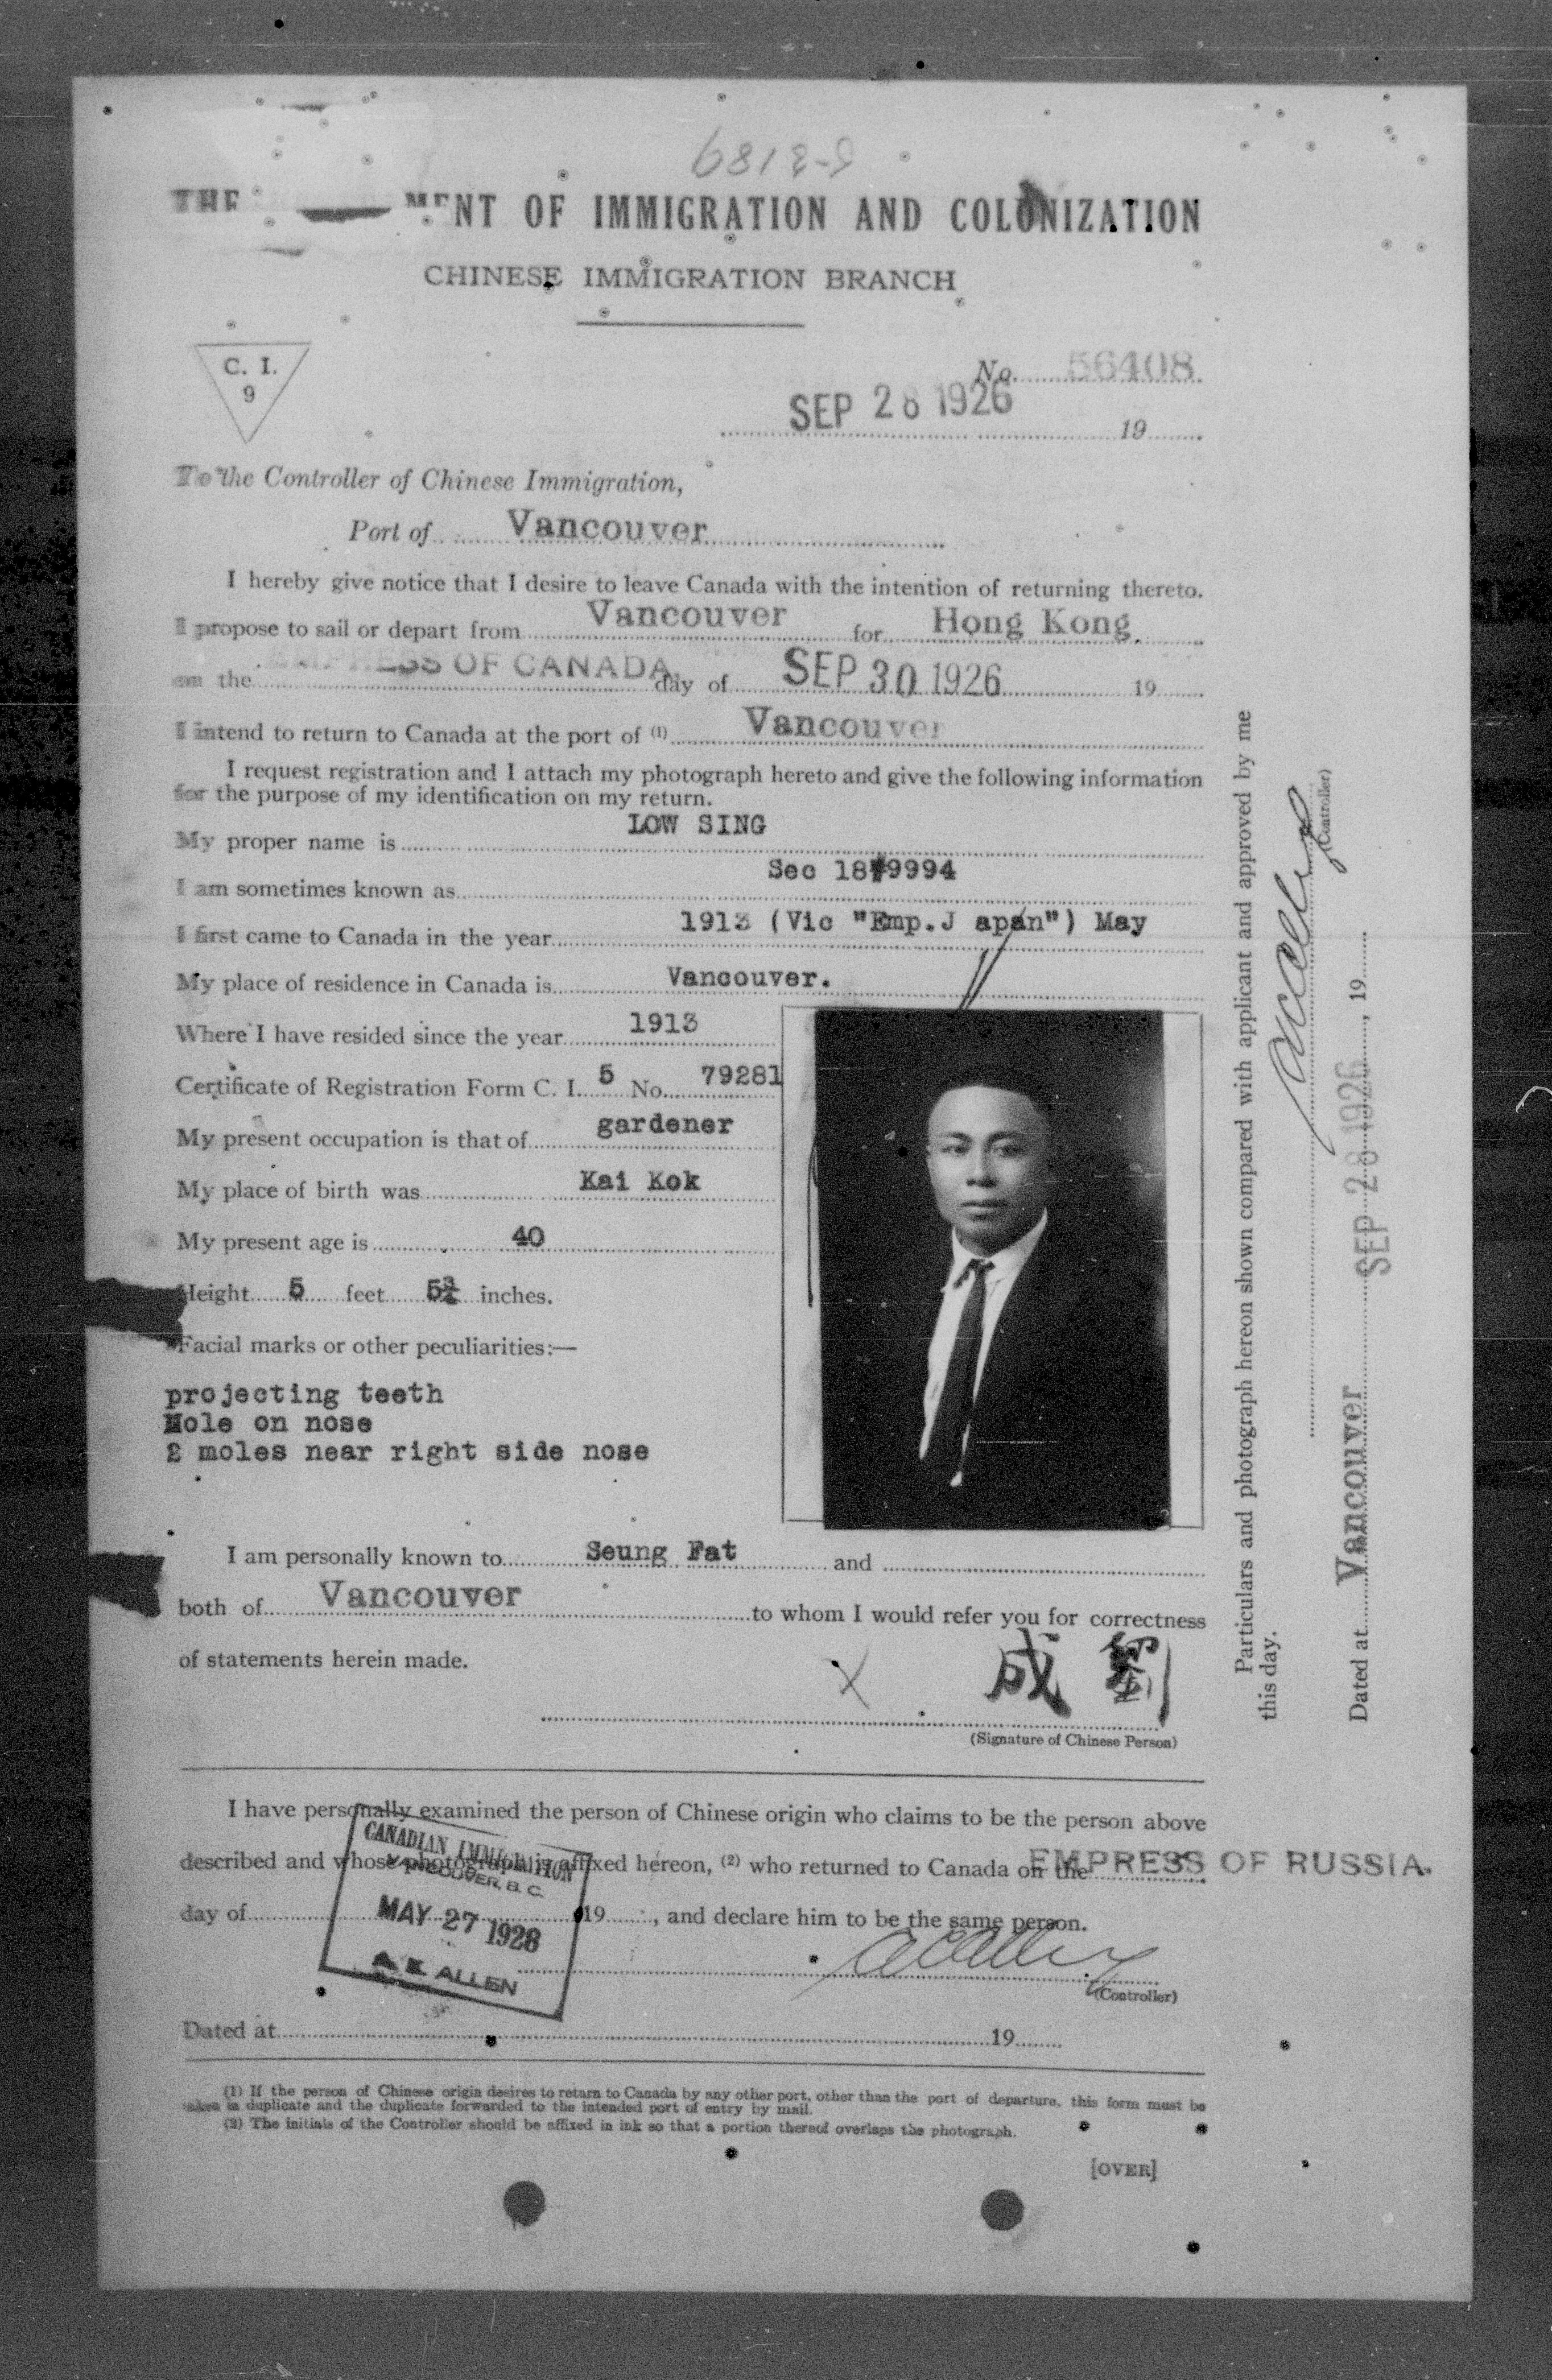 6818-9
THE MENT OF IMMIGRATION AND COLONIZATION
CHINESE IMMIGRATION BRANCH
C. I.
9
No. 56408
SEP 28 1926 19
To the Controller of Chinese Immigration,
Port of Vancouver
I hereby give notice that I desire to leave Canada with the intention of returning thereto.
I propose to sail or depart from Vancouver for Hong Kong.
on the EMPRESS OF CANADA. day of SEP 30 1926 19
I intend to return to Canada at the port of (1) Vancouver
I request registration and I attach my photograph hereto and give the following information
for the purpose of my identification on my return.
My proper name is LOW SING
I am sometimes known as Sec 18#9994
I first came to Canada in the year 1913 (Vic "Emp.J apan") May
My place of residence in Canada is Vancouver.
Where I have resided since the year 1913
Certificate of Registration Form C. I. 5 No. 79281
My present occupation is that of gardener
My place of birth was Kai Kok
My present age is 40
Height 5 feet 5¾ inches.
Facial marks or other peculiarities:—
projecting teeth
Mole on nose
2 moles near right side nose
I am personally known to Seung Fat and
both of Vancouver to whom I would refer you for correctness
of statements herein made.
X 成 劉
(Signature of Chinese Person)
I have personally examined the person of Chinese origin who claims to be the person above
described and whose photograph is affixed hereon, (2) who returned to Canada on the EMPRESS OF RUSSIA.
day of 19 , and declare him to be the same person.
CANADIAN IMMIGRATION
VANCOUVER, B. C.
MAY 27 1928
A. E. ALLEN
(Controller)
Dated at 19
(1) If the person of Chinese origin desires to return to Canada by any other port, other than the port of departure, this form must be
taken in duplicate and the duplicate forwarded to the intended port of entry by mail.
(2) The initials of the Controller should be affixed in ink so that a portion thereof overlaps the photograph.
[OVER]
Particulars and photograph hereon shown compared with applicant and approved by me
this day.
(Controller)
Dated at Vancouver SEP 28 1926, 19